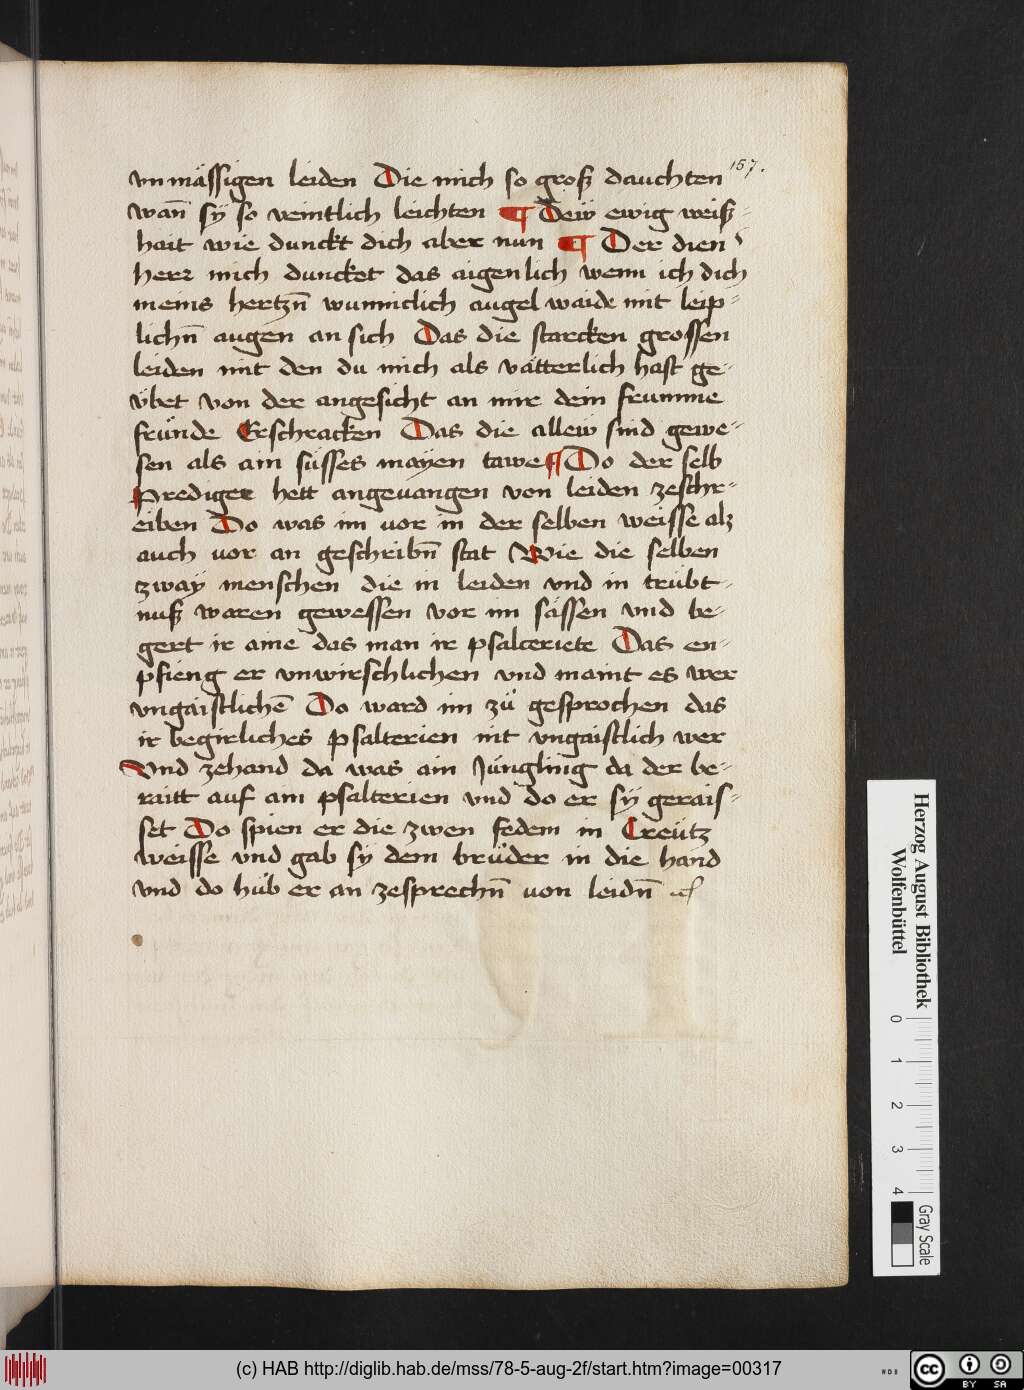 157.
vnmässigen leiden Die mich so groß dauchten
wan̄ sÿ so veintlich leichten ¶ Deiv̈ ewig weiß-
hait wie dunckt dich aber nun ¶ Der dien
herr mich duncket das aigenlich wenn ich dich
meins hertzn̄ wunniclich augel waide mit leip-
lichn̄ augen an sich Das die starcken grossen
leiden mit den du mich als vätterlich hast ge-
v̈bet von der angesicht an mir dein frumme
fründe Erschracken Das die allew sind gewe-
sen als ain süsses mayen tawe ¶ Do der selb
Prediger hett angeuangen von leiden zeschr-
eiben Do was im vor in der selben weisse alz
auch vor an geschribn̄ stat Wie die selben
zwaÿ menschen die in leiden vnd in trübt-
nuß waren gewessen vor im sässen vnd be-
gert ir aine das man ir psalterierte Das en-
pfieng er vnwirschlichen vnd maint es wer
vngaistlichē Do ward im zü gesprochen das
ir begirliches psalterien nit vngaistlich wer
Vnd zehand da was ain Jüngling da der be-
raitt auf ain psalterien vnd do er sÿ gerais-
set Do spien er die zwen fedem in Creütz
weisse vnd gab sÿ dem brüder in die hand
vnd do hüb er an zesprechn̄ von leidn̄ ⁊c
Herzog August Bibliothek
Wolfenbüttel
0 1 2 3 4
Gray Scale
(c) HAB http://diglib.hab.de/mss/78-5-aug-2f/start.htm?image=00317
WDB
cc BY SA